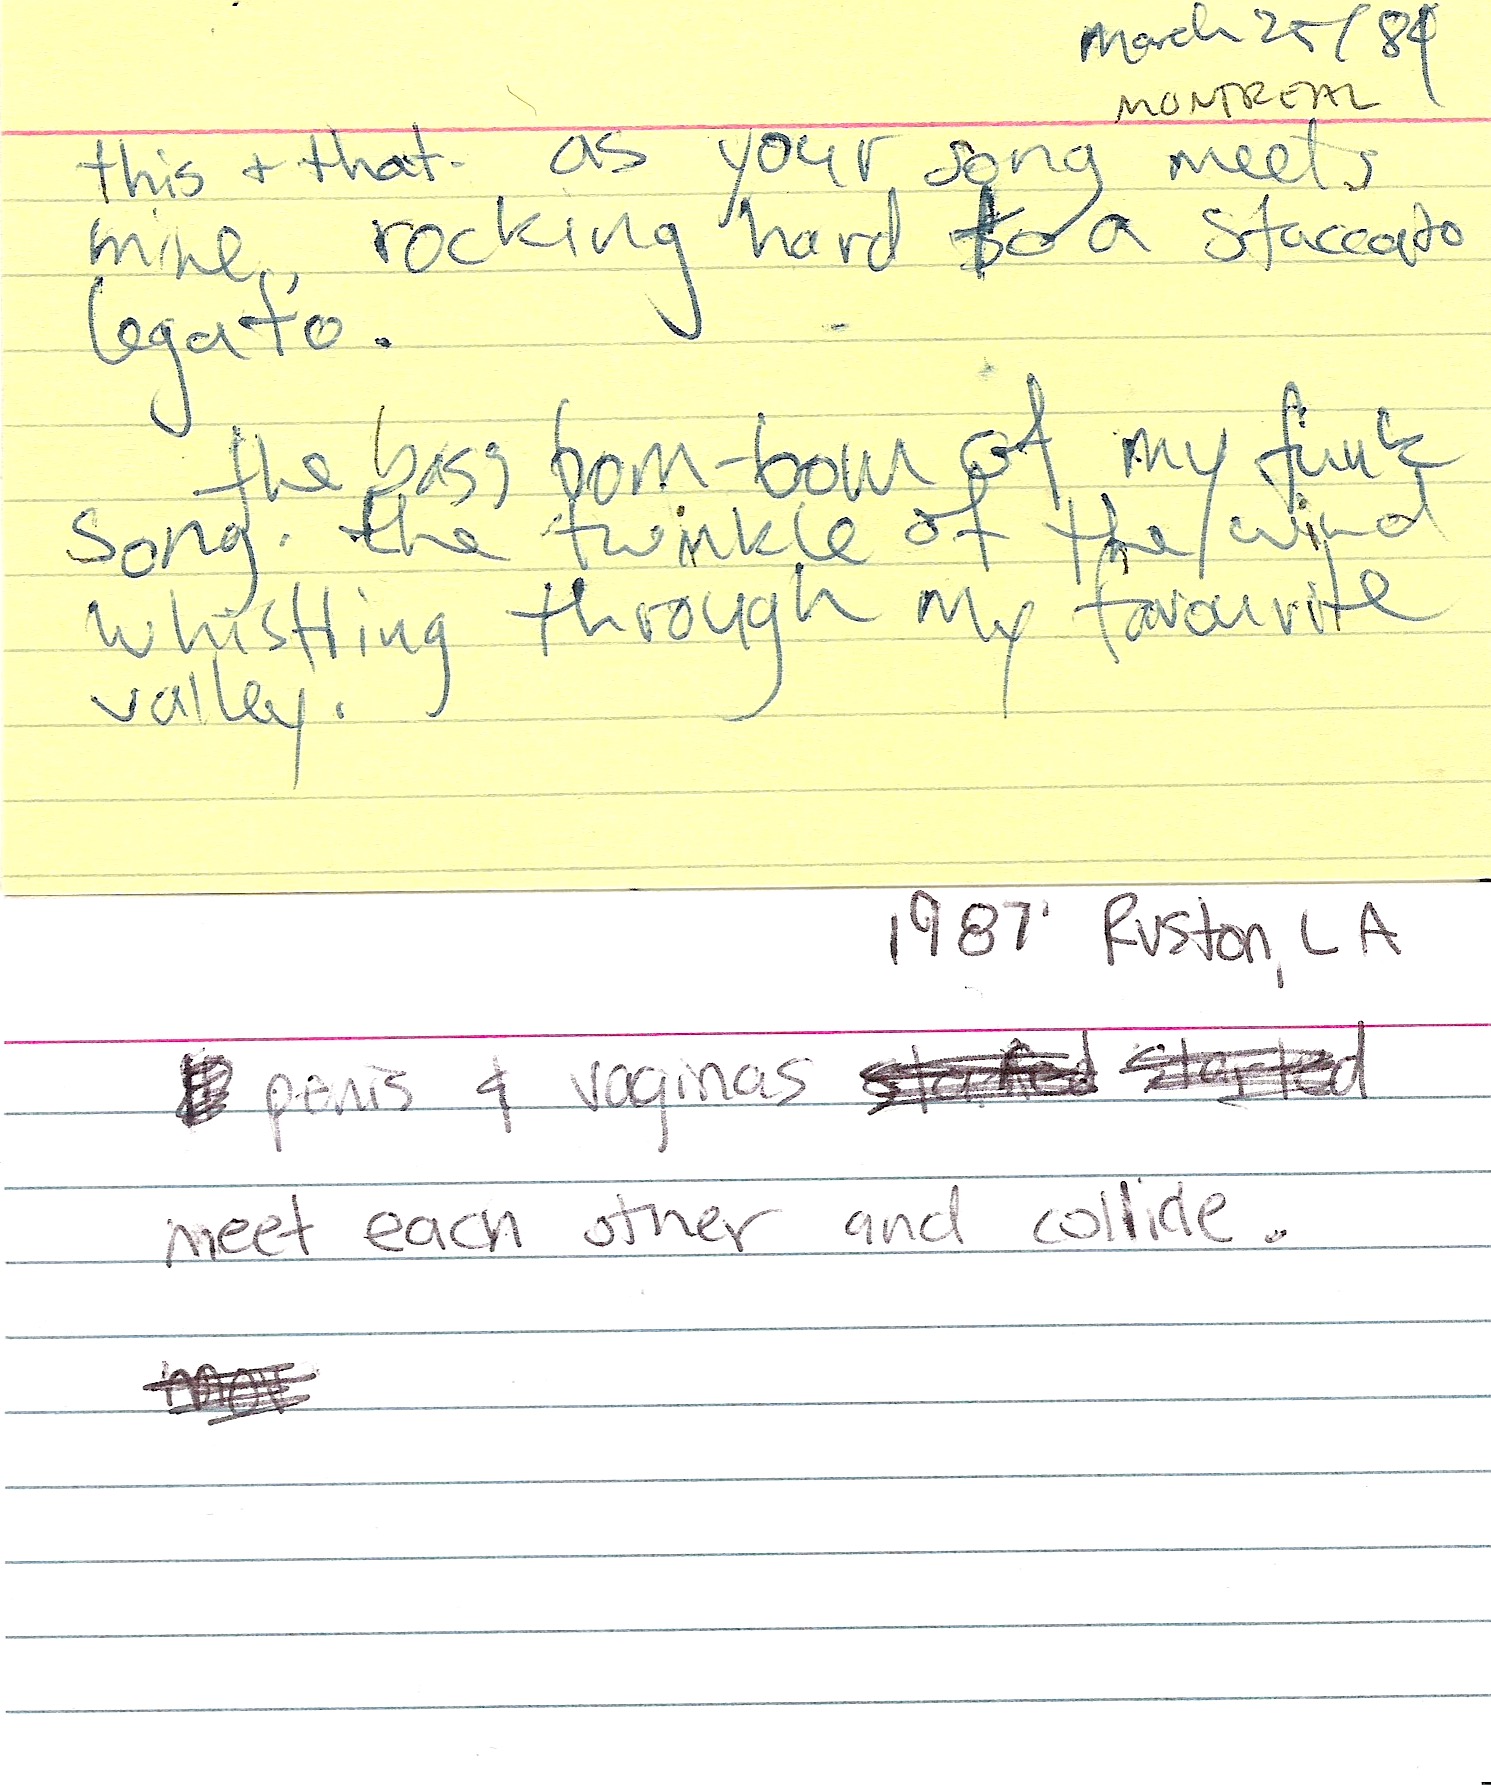 March 25/84
MONTREAL
this + that. as your song meets
mine, rocking hard to a staccato
legato.
the bass bom-bom of my funk
song. the twinkle of the wind
whistling through my favourite
valley.
1987 Ruston, LA
penis & vaginas started started
meet each other and collide.